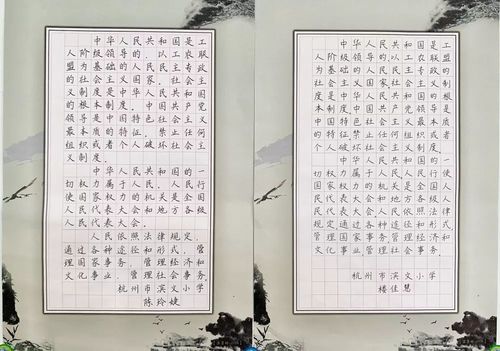 中华人民共和国是工
人阶级领导的、以工农联
盟为基础的人民民主专政
的社会主义国家。社会主
义制度是中华人民共和国
的根本制度。中国共产党
领导是中国特色社会主义
最本质的特征。禁止任何
组织或者个人破坏社会主
义制度。
中华人民共和国的一
切权力属于人民。人民行
使国家权力的机关是全国
人民代表大会和地方各级
人民代表大会。
人民依照法律规定,
通过各种途径和形式,管
理国家事务,管理经济和
文化事业,管理社会事务。
杭州市滨文小学
陈玲婕
中华人民共和国是工
人阶级领导的、以工农联盟
为基础的人民民主专政的
社会主义国家。社会主义制
度是中华人民共和国的根
本制度。中国共产党领导是
中国特色社会主义最本质
的特征。禁止任何组织或者
个人破坏社会主义制度。
中华人民共和国的一切
权力属于人民。人民行使
国家权力的机关是全国人
民代表大会和地方各级人
民代表大会。人民依照法律
规定,通过各种途径和形式,
管理国家事务,管理经济和
文化事业,管理社会事务。
杭州市滨文小学
楼佳慧